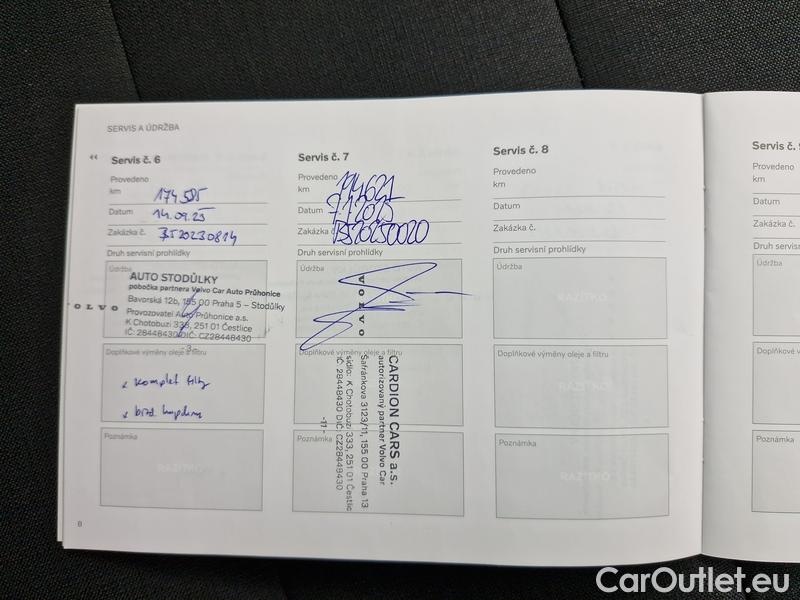 SERVIS A ÚDRŽBA
Servis č. 6
Provedeno
km 174585
Datum 14.09.23
Zakázka č. BS20230814
Druh servisní prohlídky
Údržba
AUTO STODŮLKY
pobočka partnera Volvo Car Auto Průhonice
Bavorská 12b, 155 00 Praha 5 – Stodůlky
VOLVO
Provozovatel Auto Průhonice a.s.
K Chotobuzi 333, 251 01 Čestlice
IČ: 28448430 DIČ: CZ28448430
-3-
Doplňkové výměny oleje a filtru
komplet filtry
Poznámka
RAZÍTKO
8
Servis č. 7
Provedeno
km
Datum 7 1 2025
Zakázka č. BS20250020
Druh servisní prohlídky
Údržba
VOLVO
Doplňkové výměny oleje a filtru
CARDION CARS a.s.
autorizovaný partner Volvo Car
Šafránkova 3123/11, 155 00 Praha 13
sídlo: K Chotobuzi 333, 251 01 Čestlic
IČ: 28448430 DIČ: CZ28448430
-11-
Poznámka
Servis č. 8
Provedeno
km
Datum
Zakázka č.
Druh servisní prohlídky
Údržba
RAZÍTKO
Doplňkové výměny oleje a filtru
RAZÍTKO
Poznámka
RAZÍTKO
Servis č. 9
Provedeno
km
Datum
Zakázka č.
Druh
Údržba
Doplňkové
Poznámka
CarOutlet.eu